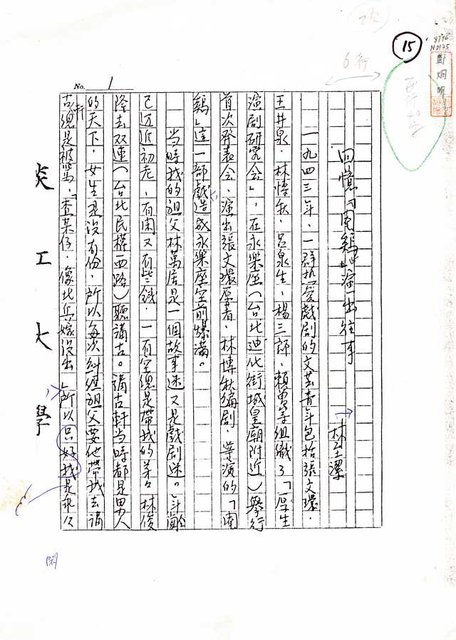 15
No. 1
回憶「閹鷄」演出往事
林至潔
一九四三年,一群热爱戲剧的文芸青年包括張文環.
王井泉.林博秋.呂泉生.楊三郎.賴男等組織了「厚生
演剧研究会」,在永楽座(台北迪化街城皇廟附近)舉行
首次發表会,演出張文環原著,林博秋編剧、導演的「閹
鷄」這一部戲造成永楽座空前爆滿。
當時我的祖父林萬居是一個故事迷又是戲剧迷。年齢
已近初老,有閑又有些銭,一有空總是帶我的弟弟林俊
隆去双連(台北民權西路)聽講古。講古軒當時都是男人
的天下,女生是没有份,所以每次糾纏祖父要他帶我去講
古軒總是被罵,「查某仔,像比丘
所以只好我是
淡江大學